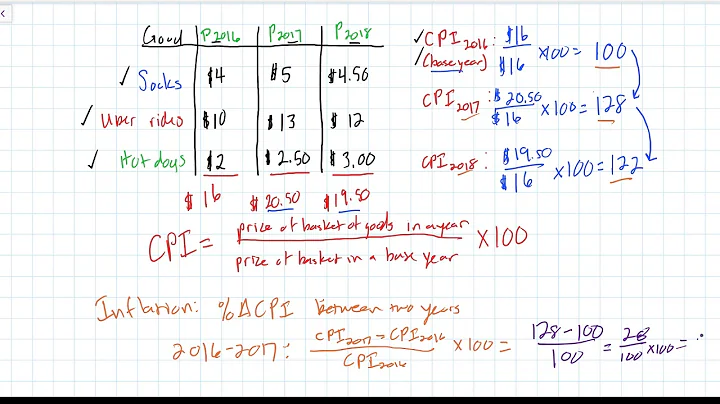 Good P2016 P2017 P2018
✓ Socks $4 $5 $4.50
✓ Uber rides $10 $13 $12
✓ Hot dogs $2 $2.50 $3.00
$16 $20.50 $19.50
✓ CPI2016: $16/$16 ×100 = 100
✓ (base year)
CPI2017: $20.50/$16 ×100 = 128
CPI2018: $19.50/$16 ×100 = 122
CPI = price of basket of goods in a year / price of basket in a base year ×100
Inflation: %ΔCPI between two years
2016-2017: CPI2017 - CPI2016 / CPI2016 ×100 = 128-100/100 = 28/100 ×100 =